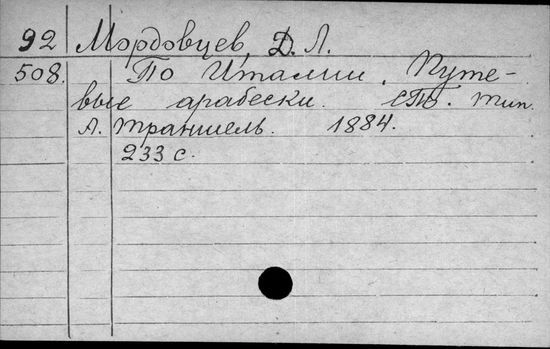 92 Мордовцев, Д. Л.
508. По Италии. Путе-
вые арабески. СПб. тип.
А. Траншель. 1884.
233 с.